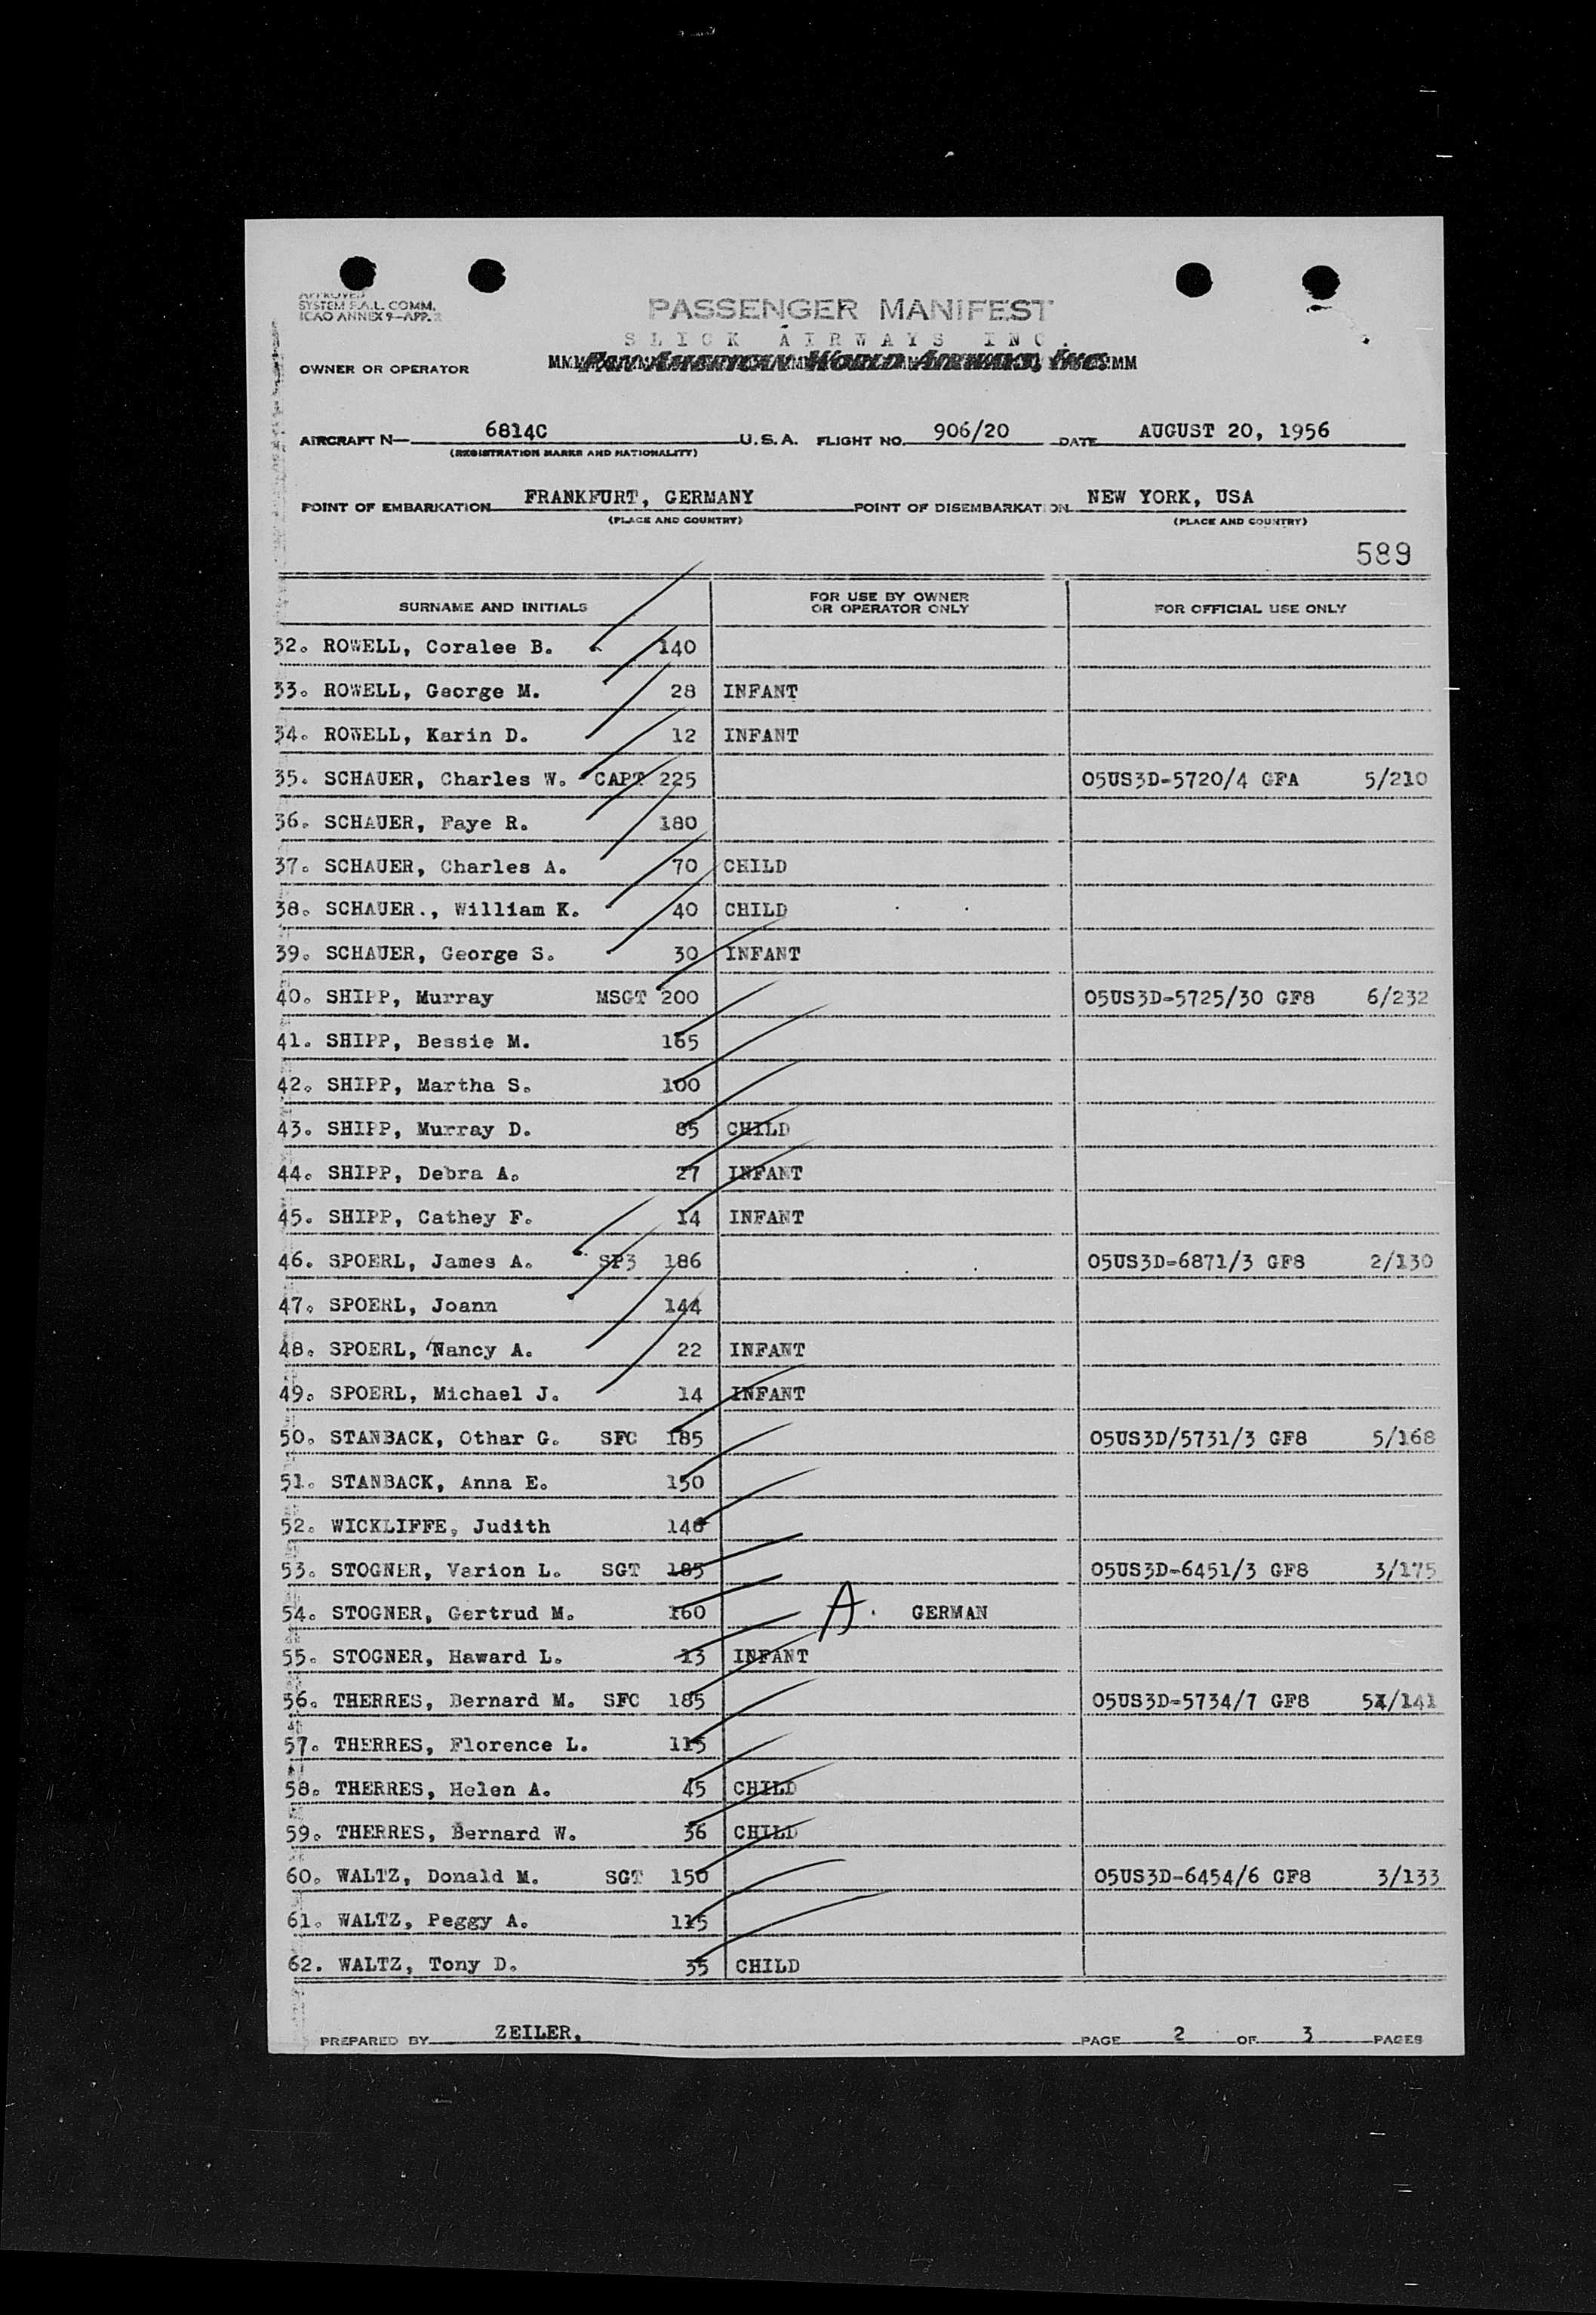 APPROVED
SYSTEM F.A.L. COMM.
ICAO ANNEX 9-APP. 2
PASSENGER MANIFEST
SLICK AIRWAYS INC.
OWNER OR OPERATOR PAN AMERICAN WORLD AIRWAYS, INC.
AIRCRAFT N— 6814C U.S.A. FLIGHT NO. 906/20 DATE AUGUST 20, 1956
(REGISTRATION MARKS AND NATIONALITY)
POINT OF EMBARKATION FRANKFURT, GERMANY POINT OF DISEMBARKATION NEW YORK, USA
(PLACE AND COUNTRY) (PLACE AND COUNTRY)
589
SURNAME AND INITIALS FOR USE BY OWNER OR OPERATOR ONLY FOR OFFICIAL USE ONLY
32. ROWELL, Coralee B. 140
33. ROWELL, George M. 28 INFANT
34. ROWELL, Karin D. 12 INFANT
35. SCHAUER, Charles W. CAPT 225 05US3D-5720/4 GFA 5/210
36. SCHAUER, Faye R. 180
37. SCHAUER, Charles A. 70 CHILD
38. SCHAUER., William K. 40 CHILD
39. SCHAUER, George S. 30 INFANT
40. SHIPP, Murray MSGT 200 05US3D-5725/30 GF8 6/232
41. SHIPP, Bessie M. 165
42. SHIPP, Martha S. 100
43. SHIPP, Murray D. 85 CHILD
44. SHIPP, Debra A. 27 INFANT
45. SHIPP, Cathey F. 14 INFANT
46. SPOERL, James A. SP3 186 05US3D-6871/3 GF8 2/130
47. SPOERL, Joann 144
48. SPOERL, Nancy A. 22 INFANT
49. SPOERL, Michael J. 14 INFANT
50. STANBACK, Othar G. SFC 185 05US3D/5731/3 GF8 5/168
51. STANBACK, Anna E. 150
52. WICKLIFFE, Judith
53. STOGNER, Varion L. SGT 185 05US3D-6451/3 GF8 3/175
54. STOGNER, Gertrud M. 160 A. GERMAN
55. STOGNER, Haward L. 13 INFANT
56. THERRES, Bernard M. SFC 185 05US3D-5734/7 GF8 /141
57. THERRES, Florence L. 115
58. THERRES, Helen A. 45 CHILD
59. THERRES, Bernard W. 36 CHILD
60. WALTZ, Donald M. SGT 150 05US3D-6454/6 GF8 3/133
61. WALTZ, Peggy A. 115
62. WALTZ, Tony D. 35 CHILD
PREPARED BY ZEILER, PAGE 2 OF 3 PAGES